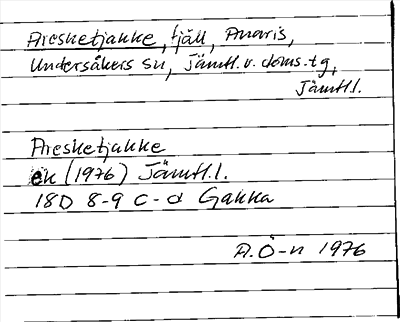 Aresketjakke, fjäll, Anaris,
Undersåkers sn, Jämtl. v. doms.tg,
Jämtl.l.
Aresketjakke
ek (1976) Jämtl.l.
18D 8-9 c-d Gakka
A.Ö-n 1976